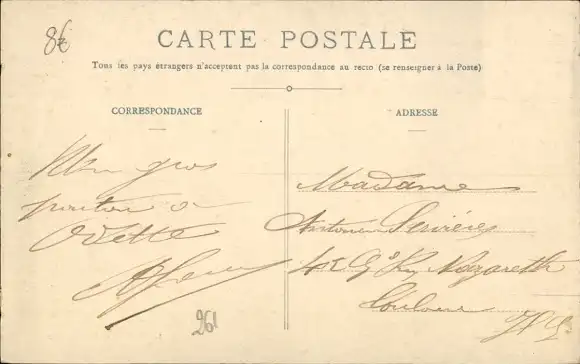 8€
CARTE POSTALE
Tous les pays étrangers n'acceptent pas la correspondance au recto (se renseigner à la Poste)
CORRESPONDANCE
ADRESSE
Mon gros
Odette
Madame
Antonin
Nazareth
Toulouse
261